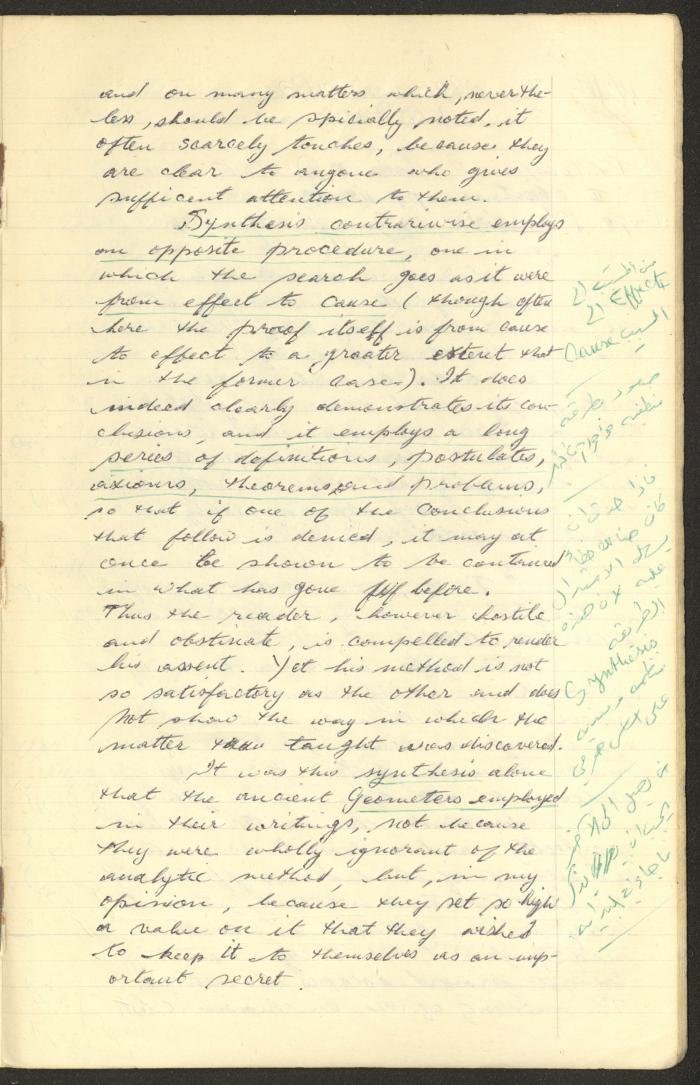 and on many matters which, neverthe-
less, should be spicially noted, it
often scarcely touches, because they
are clear to anyone who gives
sufficent attention to them.
Synthesis contrariwise employs
an opposite procedure, one in
which the search goes as it were
from effect to cause (though often
here the proof itself is from cause
to effect to a greater extent that
in the former case). It does
indeed clearly demonstrates its con-
clusions, and it employs a long
series of definitions, postulates,
axioms, theorems and problems,
so that if one of the conclusions
that follow is denied, it may at
once be shown to be contained
in what has gone before.
Thus the reader, however hostile
and obstinate, is compelled to render
his assent. Yet his method is not
so satisfactory as the other and does
not show the way in which the
matter taught was discovered.
It was this synthesis alone
that the ancient Geometers employed
in their writings, not because
they were wholly ignorant of the
analytic method, but, in my
opinion, because they set so high
a value on it that they wished
to keep it to themselves as an imp-
ortant secret.
الى Effect
Cause
الطريقه
Synthesis